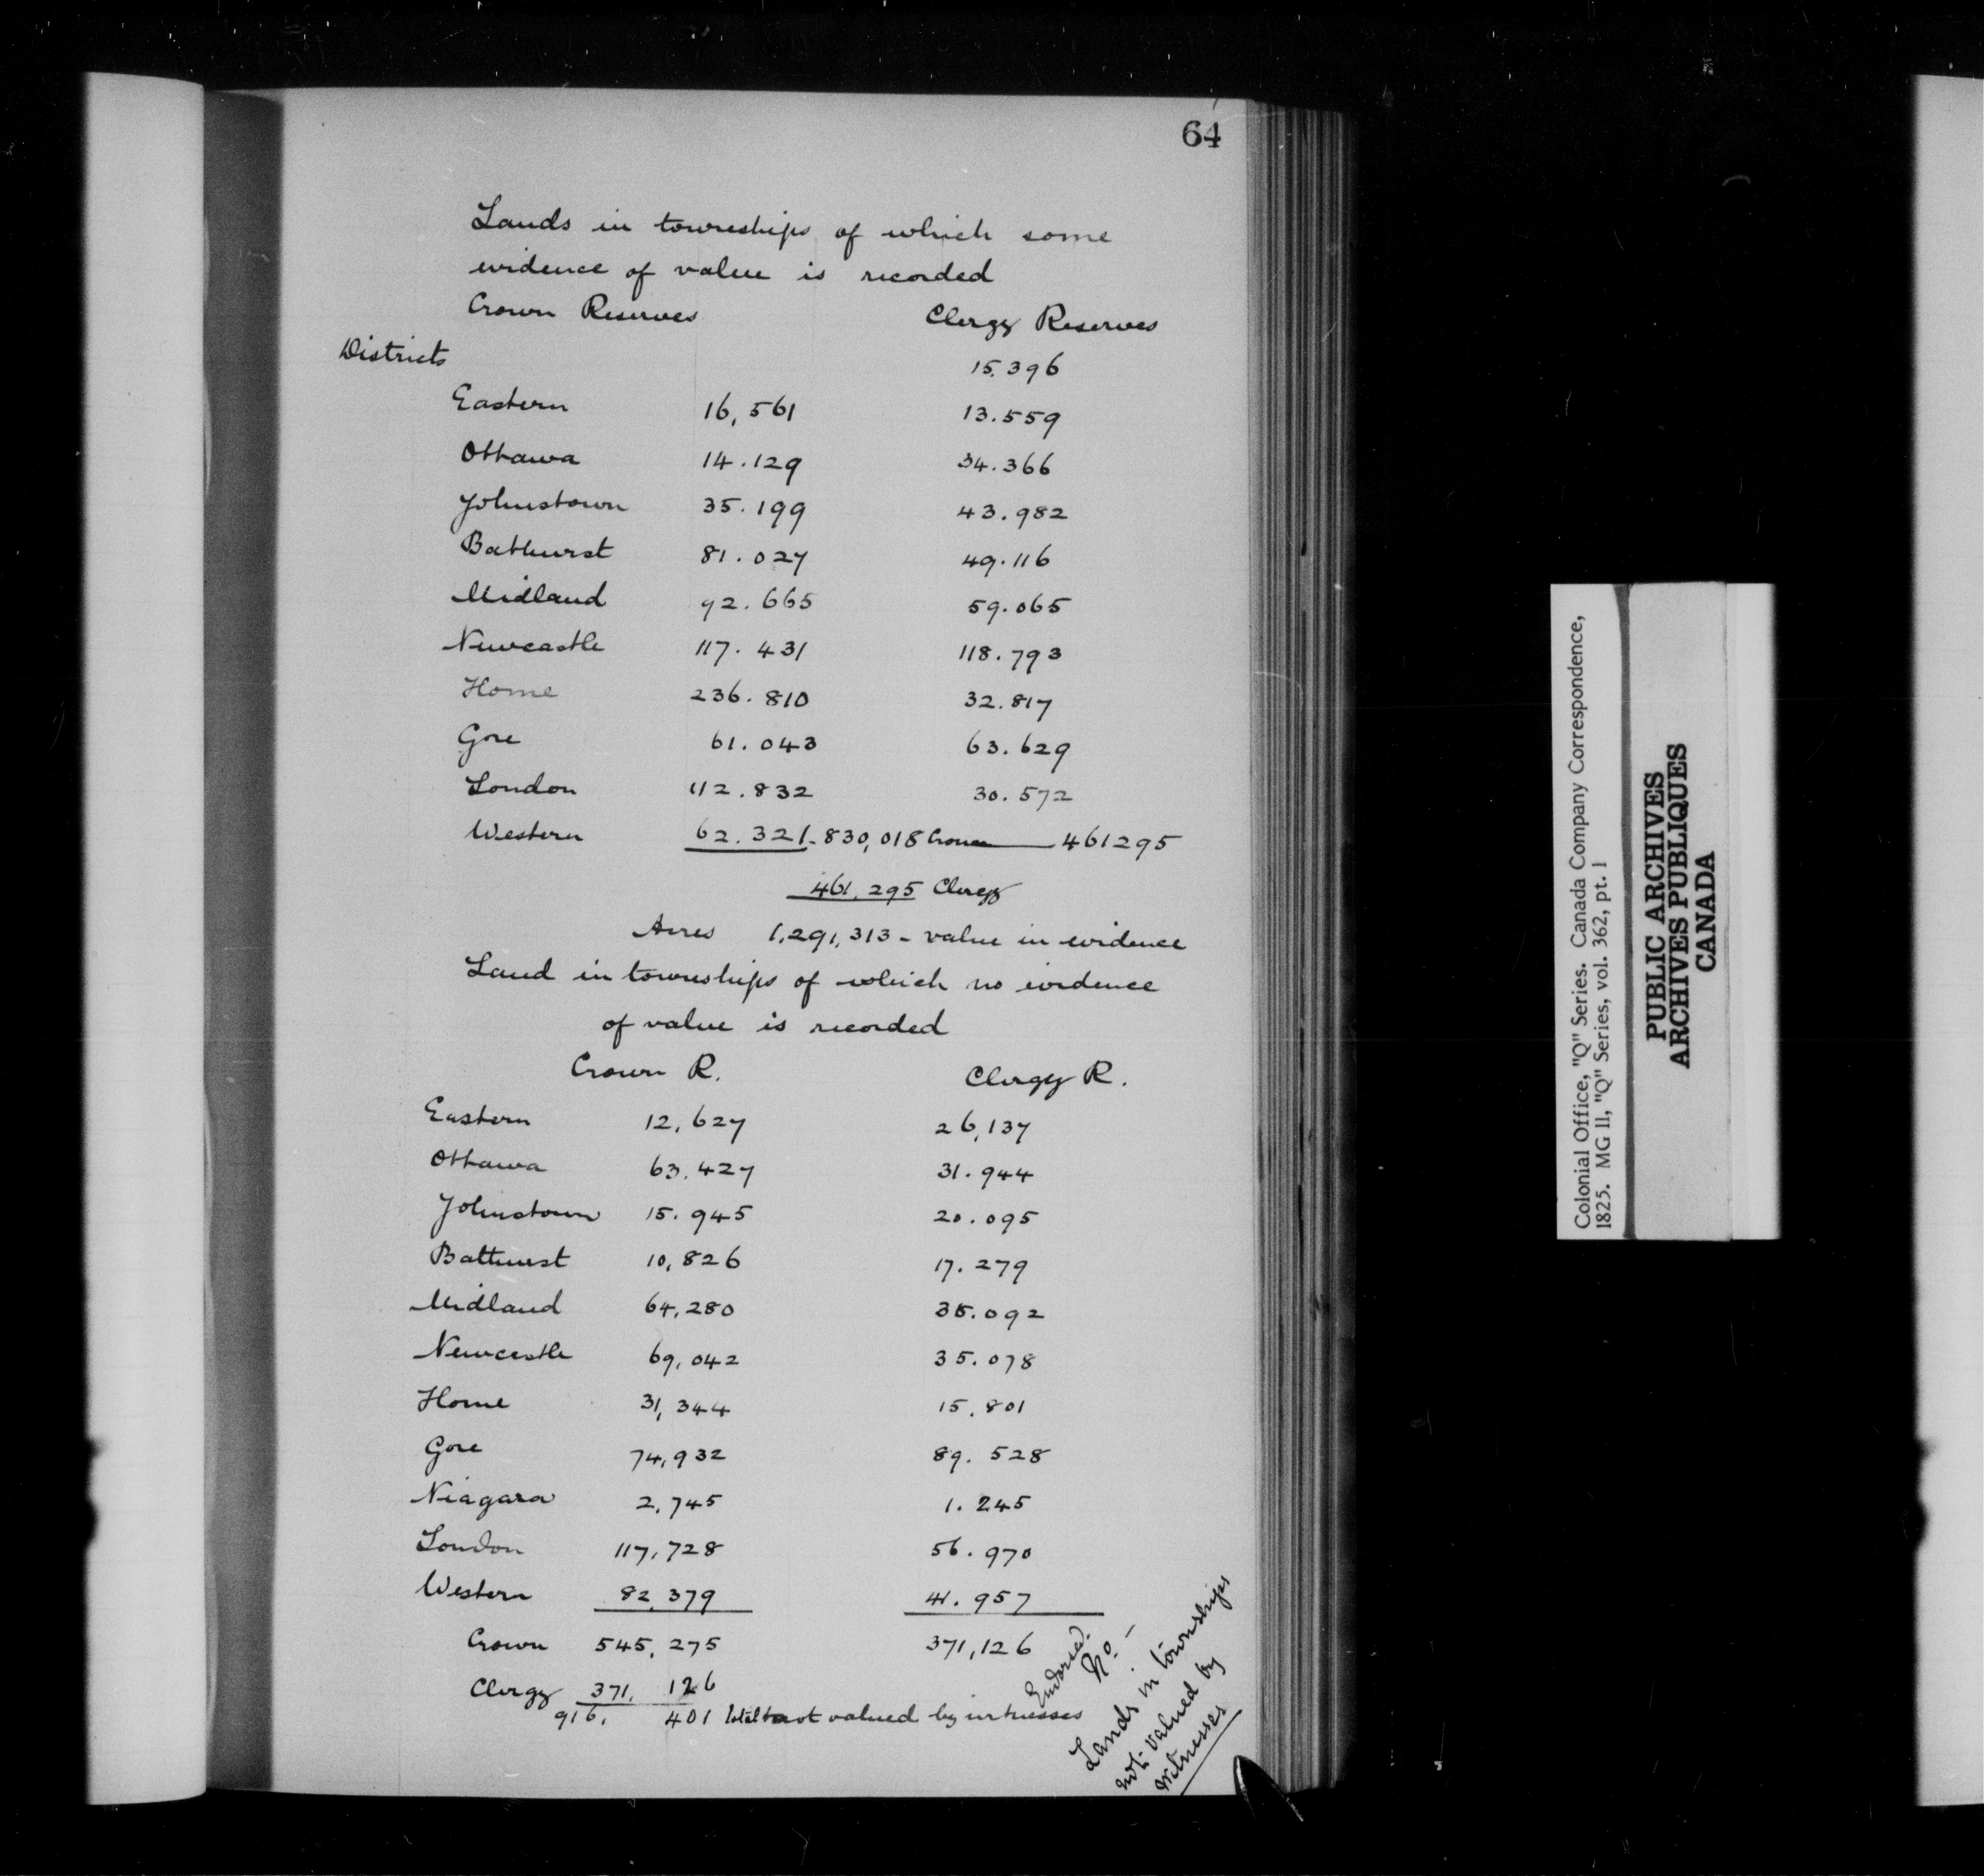 64
Lands in townships of which some
evidence of value is recorded
Crown Reserves Clergy Reserves
Districts 15.396
Eastern 16,561 13.559
Ottawa 14.129 34.366
Johnstown 35.199 43.982
Bathurst 81.027 49.116
Midland 92.665 59.065
Newcastle 117.431 118.793
Home 236.810 32.817
Gore 61.043 63.629
London 112.832 30.572
Western 62.321 - 830,018 Crown 461295
461.295 Clergy
Acres 1,291,313 - value in evidence
Land in townships of which no evidence
of value is recorded
Crown R. Clergy R.
Eastern 12,627 26,137
Ottawa 63.427 31.944
Johnstown 15.945 20.095
Bathurst 10,826 17.279
Midland 64,280 35.092
Newcastle 69,042 35.078
Home 31,344 15.801
Gore 74,932 89.528
Niagara 2,745 1.245
London 117,728 56.970
Western 82,379 41.957
Crown 545,275 371,126
Clergy 371,126
916,401 total not valued by witnesses
Endorsed.
No. -
Lands in townships
not valued by
witnesses
Colonial Office, "Q" Series. Canada Company Correspondence,
1825. MG 11, "Q" Series, vol. 362, pt. 1
PUBLIC ARCHIVES
ARCHIVES PUBLIQUES
CANADA